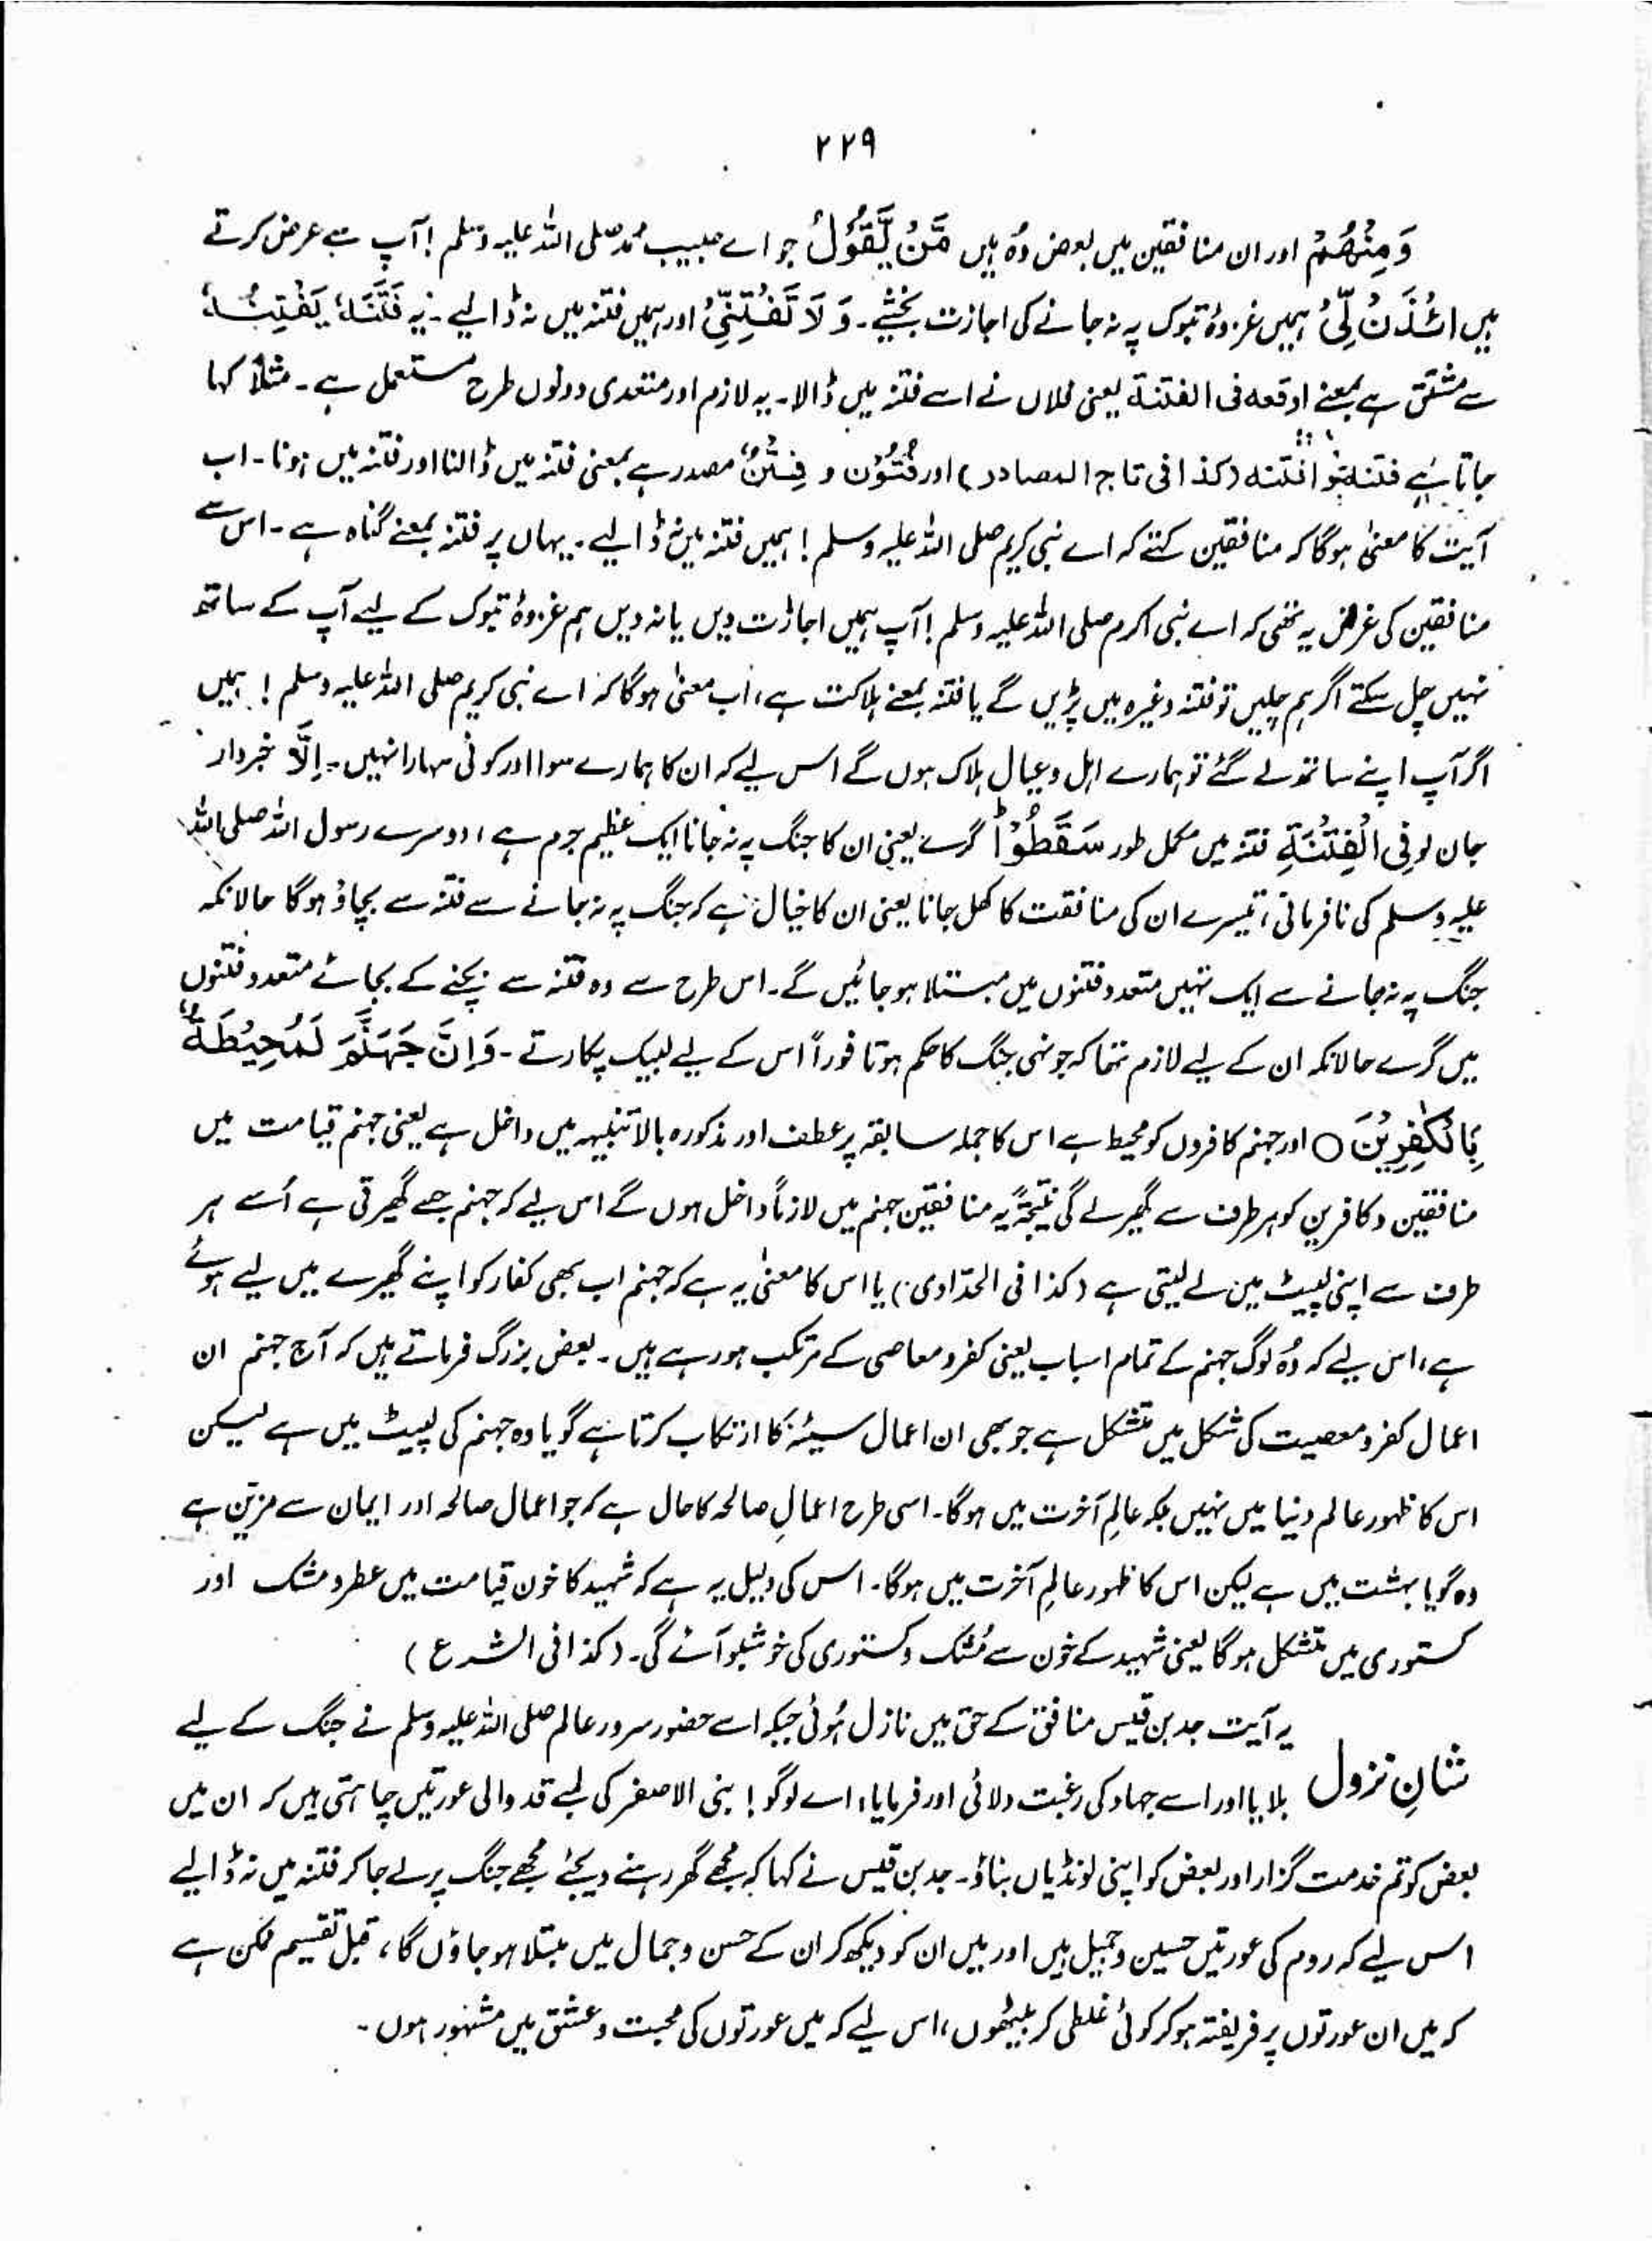 ۲۲۹
وَمِنْهُمْ اور ان منافقین میں بعض وُہ ہیں مَّنْ يَّقُوْلُ جو اے حبیب محمد صلی اللہ علیہ وسلم ! آپ سے عرض کرتے
ہیں ائْذَنْ لِّيْ ہمیں غزوۂ تبوک پہ نہ جانے کی اجازت بخشئے ۔ وَ لَا تَفْتِنِّيْ اور ہمیں فتنہ میں نہ ڈالیے ۔ یہ فَتَنَهٗ يَفْتِنُهٗ
سے مشتق ہے بمعنے اوقعه فی الفتنة یعنی فلاں نے اسے فتنہ میں ڈالا ۔ یہ لازم اور متعدی دونوں طرح مستعمل ہے ۔ مثلاً کہا
جاتا ہے فتنه افتنه (کذا فی تاج المصادر) اور فُتُوْن و فِتَنٌ مصدر ہے بمعنی فتنہ میں ڈالنا اور فتنہ میں ہونا ۔ اب
آیت کا معنیٰ ہوگا کہ منافقین کہتے کہ اے نبی کریم صلی اللہ علیہ وسلم ! ہمیں فتنہ میں نہ ڈالیے ۔ یہاں پر فتنہ بمعنے گناہ ہے ۔ اس سے
منافقین کی غرض یہ تھی کہ اے نبی اکرم صلی اللہ علیہ وسلم ! آپ ہمیں اجازت دیں یا نہ دیں ہم غزوۂ تبوک کے لیے آپ کے ساتھ
نہیں چل سکتے اگر ہم چلیں تو فتنہ وغیرہ میں پڑیں گے یا فتنہ بمعنے ہلاکت ہے ، اب معنیٰ ہوگا کہ اے نبی کریم صلی اللہ علیہ وسلم ! ہمیں
اگر آپ اپنے ساتھ لے گئے تو ہمارے اہل و عیال ہلاک ہوں گے اس لیے کہ ان کا ہمارے سوا اور کوئی سہارا نہیں ۔ اَلَا خبردار
جان لو فِی الْفِتْنَةِ فتنہ میں مکمل طور سَقَطُوْا گرے یعنی ان کا جنگ پہ نہ جانا ایک عظیم جرم ہے ، دوسرے رسول اللہ صلی اللہ
علیہ وسلم کی نافرمانی ، تیسرے ان کی منافقت کا کھل جانا یعنی ان کا خیال ہے کہ جنگ پہ نہ جانے سے فتنہ سے بچاؤ ہوگا حالانکہ
جنگ پہ نہ جانے سے ایک نہیں متعدد فتنوں میں مبتلا ہو جائیں گے ۔ اس طرح سے وہ فتنہ سے بچنے کے بجائے متعدد فتنوں
میں گرے حالانکہ ان کے لیے لازم تھا کہ جونہی جنگ کا حکم ہوتا فوراً اس کے لیے لبیک پکارتے ۔ وَاِنَّ جَهَنَّمَ لَمُحِيْطَةٌۢ
بِالْكٰفِرِيْنَ ○ اور جہنم کافروں کو محیط ہے اس کا جملہ سابقہ پر عطف اور مذکورہ بالا تنبیہہ میں داخل ہے یعنی جہنم قیامت میں
منافقین و کافرین کو ہر طرف سے گھیر لے گی نتیجۃً یہ منافقین جہنم میں لازماً داخل ہوں گے اس لیے کہ جہنم جسے گھیرتی ہے اُسے ہر
طرف سے اپنی لپیٹ میں لے لیتی ہے (کذا فی الحدّادی) یا اس کا معنیٰ یہ ہے کہ جہنم اب بھی کفار کو اپنے گھیرے میں لیے ہوئے
ہے ، اس لیے کہ وُہ لوگ جہنم کے تمام اسباب یعنی کفر و معاصی کے مرتکب ہو رہے ہیں ۔ بعض بزرگ فرماتے ہیں کہ آج جہنم ان
اعمال کفر و معصیت کی شکل میں متشکل ہے جو بھی ان اعمال سیئہ کا ارتکاب کرتا ہے گویا وہ جہنم کی لپیٹ میں ہے لیکن
اس کا ظہور عالم دنیا میں نہیں بلکہ عالمِ آخرت میں ہوگا ۔ اسی طرح اعمالِ صالحہ کا حال ہے کہ جو اعمال صالحہ اور ایمان سے مزین ہے
وہ گویا بہشت میں ہے لیکن اس کا ظہور عالمِ آخرت میں ہوگا ۔ اس کی دلیل یہ ہے کہ شہید کا خون قیامت میں عطر و مشک اور
کستوری میں متشکل ہوگا یعنی شہید کے خون سے مُشک و کستوری کی خوشبو آئے گی ۔ (کذا فی الشرع)
یہ آیت جد بن قیس منافق کے حق میں نازل ہُوئی جبکہ اسے حضور سرور عالم صلی اللہ علیہ وسلم نے جنگ کے لیے
شانِ نزول بلایا اور اسے جہاد کی رغبت دلائی اور فرمایا ، اے لوگو ! بنی الاصفر کی لمبے قد والی عورتیں چاہتی ہیں کہ ان میں
بعض کو تم خدمت گزار اور بعض کو اپنی لونڈیاں بناؤ ۔ جد بن قیس نے کہا کہ مجھے گھر رہنے دیجئے مجھے جنگ پر لے جا کر فتنہ میں نہ ڈالیے
اس لیے کہ روم کی عورتیں حسین و جمیل ہیں اور میں ان کو دیکھ کر ان کے حسن و جمال میں مبتلا ہو جاؤں گا ، قبل تقسیم ممکن ہے
کہ میں ان عورتوں پر فریفتہ ہو کر کوئی غلطی کر بیٹھوں ، اس لیے کہ میں عورتوں کی محبت و عشق میں مشہور ہوں ۔